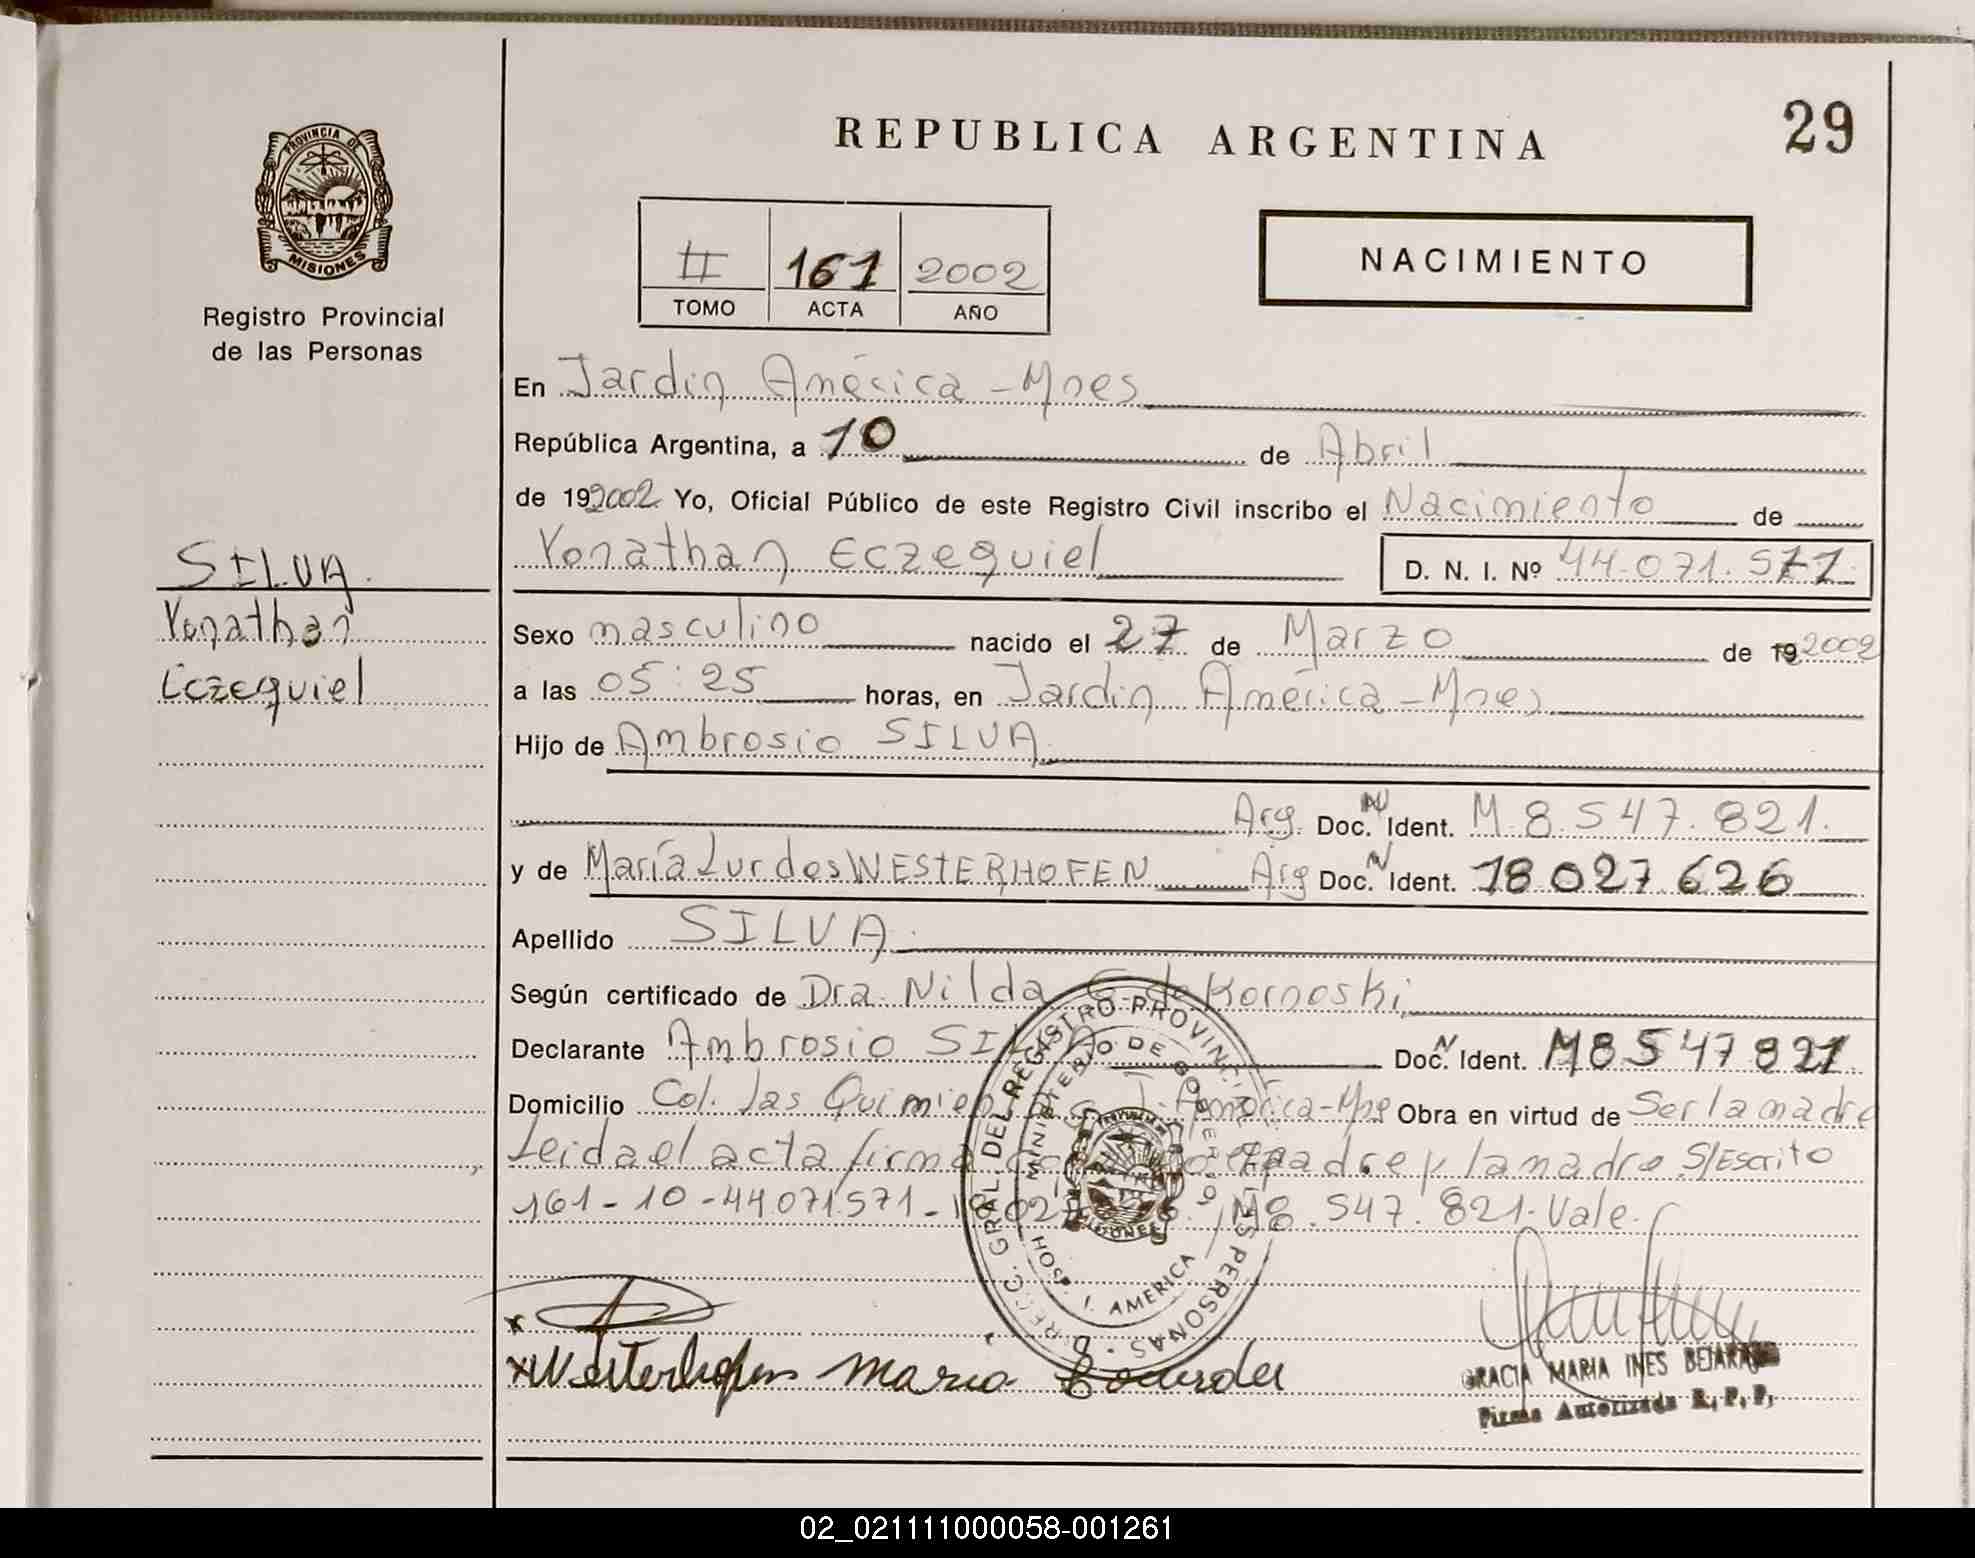 29
REPUBLICA ARGENTINA
PROVINCIA DE
MISIONES
Registro Provincial
de las Personas
II 161 2002
TOMO ACTA AÑO
NACIMIENTO
En Jardin América - Mnes
República Argentina, a 10 de Abril
de 192002 Yo, Oficial Público de este Registro Civil inscribo el Nacimiento de
Yonathan Eczequiel D. N. I. Nº 44.071.571
SILVA
Yonathan
Eczequiel
Sexo masculino nacido el 27 de Marzo de 19 2002
a las 05:25 horas, en Jardin América - Mnes
Hijo de Ambrosio SILVA
Arg. Doc. N Ident. M 8.547.821.
y de María Lurdes WESTERHOFEN Arg Doc. N Ident. 18 027 626
Apellido SILVA
Según certificado de Dra. Nilda G de Kornoski
Declarante Ambrosio SILVA Doc. N Ident. M8547821
Domicilio Col. Las J. América - Mne Obra en virtud de Ser la madre
Leida el acta firma el padre y la madre S/Escrito
161 - 10 - 44071571 - 18 027 M8.547.821. Vale.
REG. GRAL DEL REGISTRO PROVINCIAL DE LAS PERSONAS
MINISTERIO DE GOBIERNO
MISIONES
HOSP. J. AMERICA
x
x Westerhofen Maria Lourdes
GRACIA MARIA INES BEJARANO
Firma Autorizada R. P. P.
02_021111000058-001261